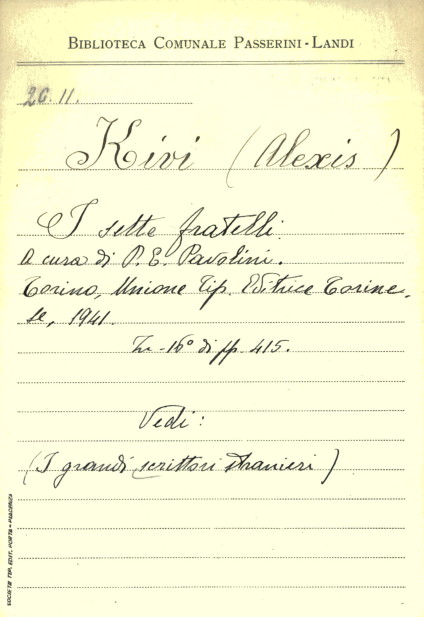 BIBLIOTECA COMUNALE PASSERINI-LANDI
20.11.
Kivi (Alexis)
I sette fratelli.
A cura di P. E. Pavolini.
Torino, Unione Tip. Editrice Torine-
se, 1941.
In-16° di pp. 415.
Vedi:
(I grandi scrittori stranieri)
SOCIETÀ TIP. EDIT. PORTA - PIACENZA